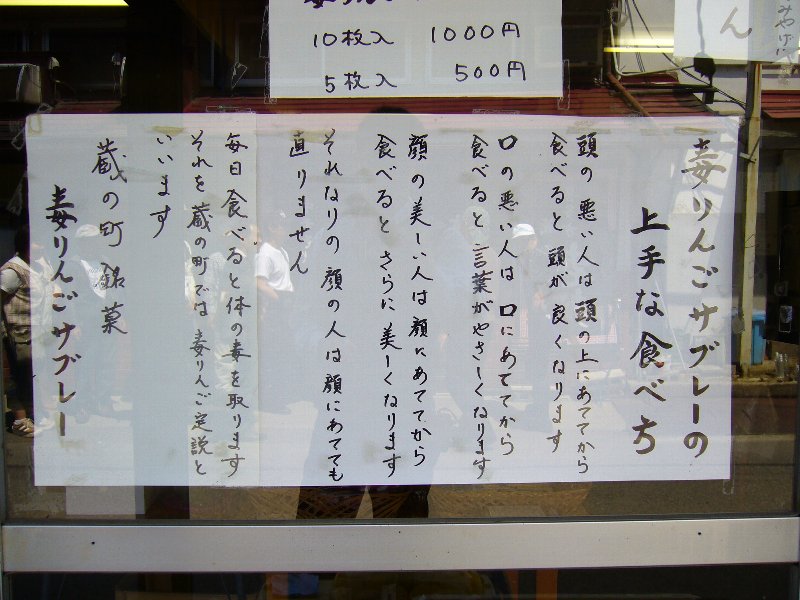 毒りんご
10枚入 1000円
5枚入 500円
ん
みやげに
毒りんごサブレーの
上手な食べち
頭の悪い人は頭の上にあててから
食べると頭が良くなります
口の悪い人は口にあててから
食べると言葉がやさしくなります
顔の美しい人は顔にあててから
食べるとさらに美しくなります
それなりの顔の人は顔にあてても
直りません
毎日食べると体の毒を取ります
それを蔵の町では毒りんご定説と
いいます
蔵の町銘菓
毒りんごサブレー